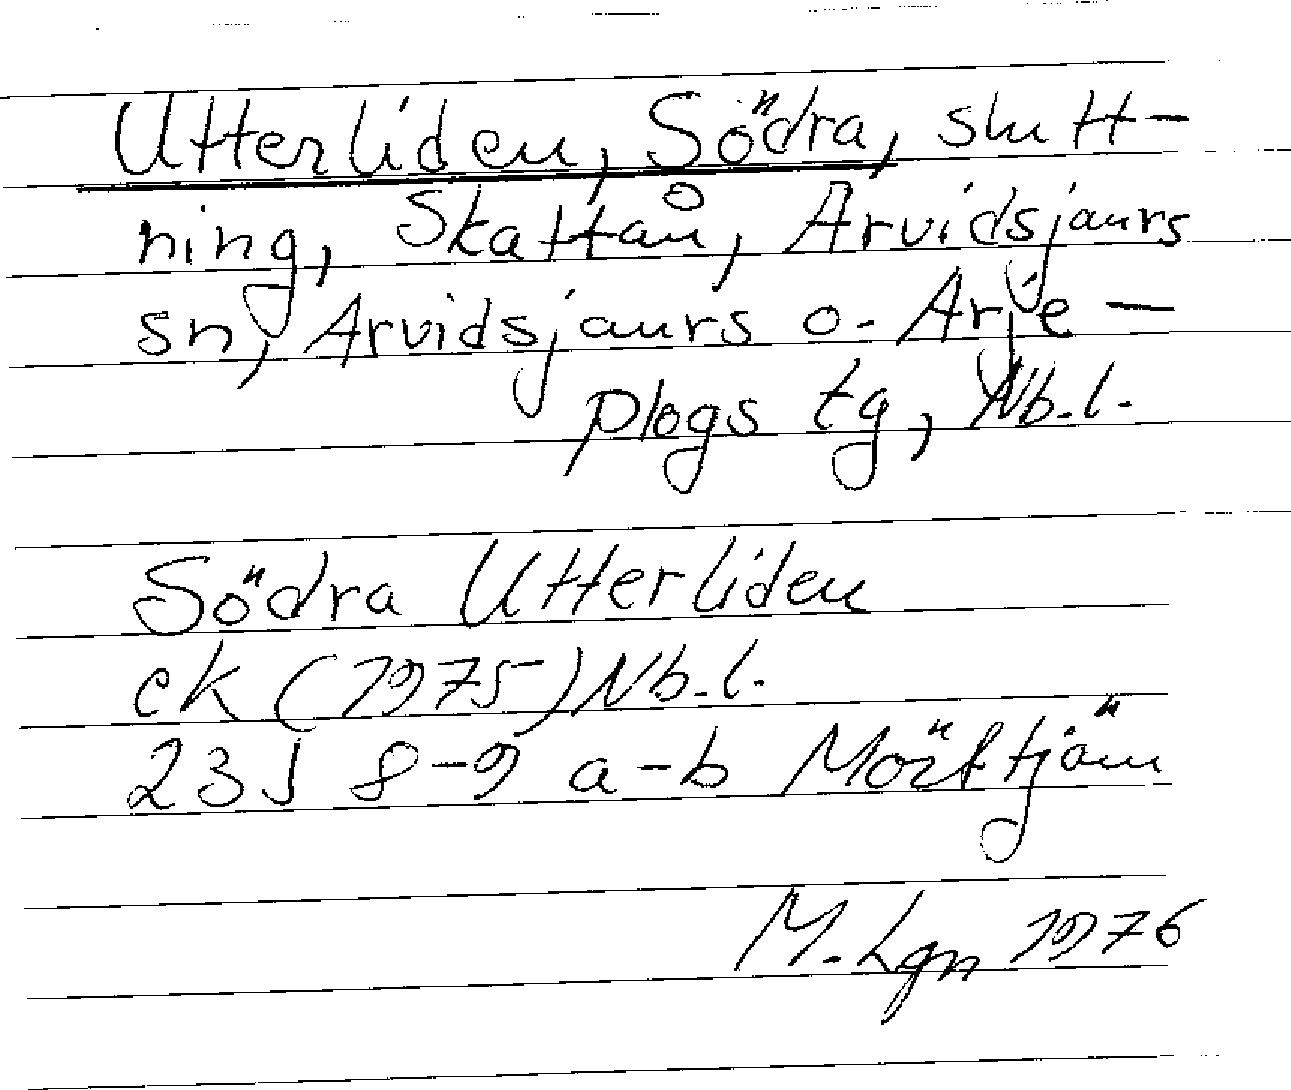 Utterliden, Södra, slutt-
ning, Skattån, Arvidsjaurs
sn, Arvidsjaurs o. Arje-
plogs tg, Nb.l.
Södra Utterliden
ek (1975) Nb.l.
23J 8-9 a-b Mörttjärn
M. Lgn 1976